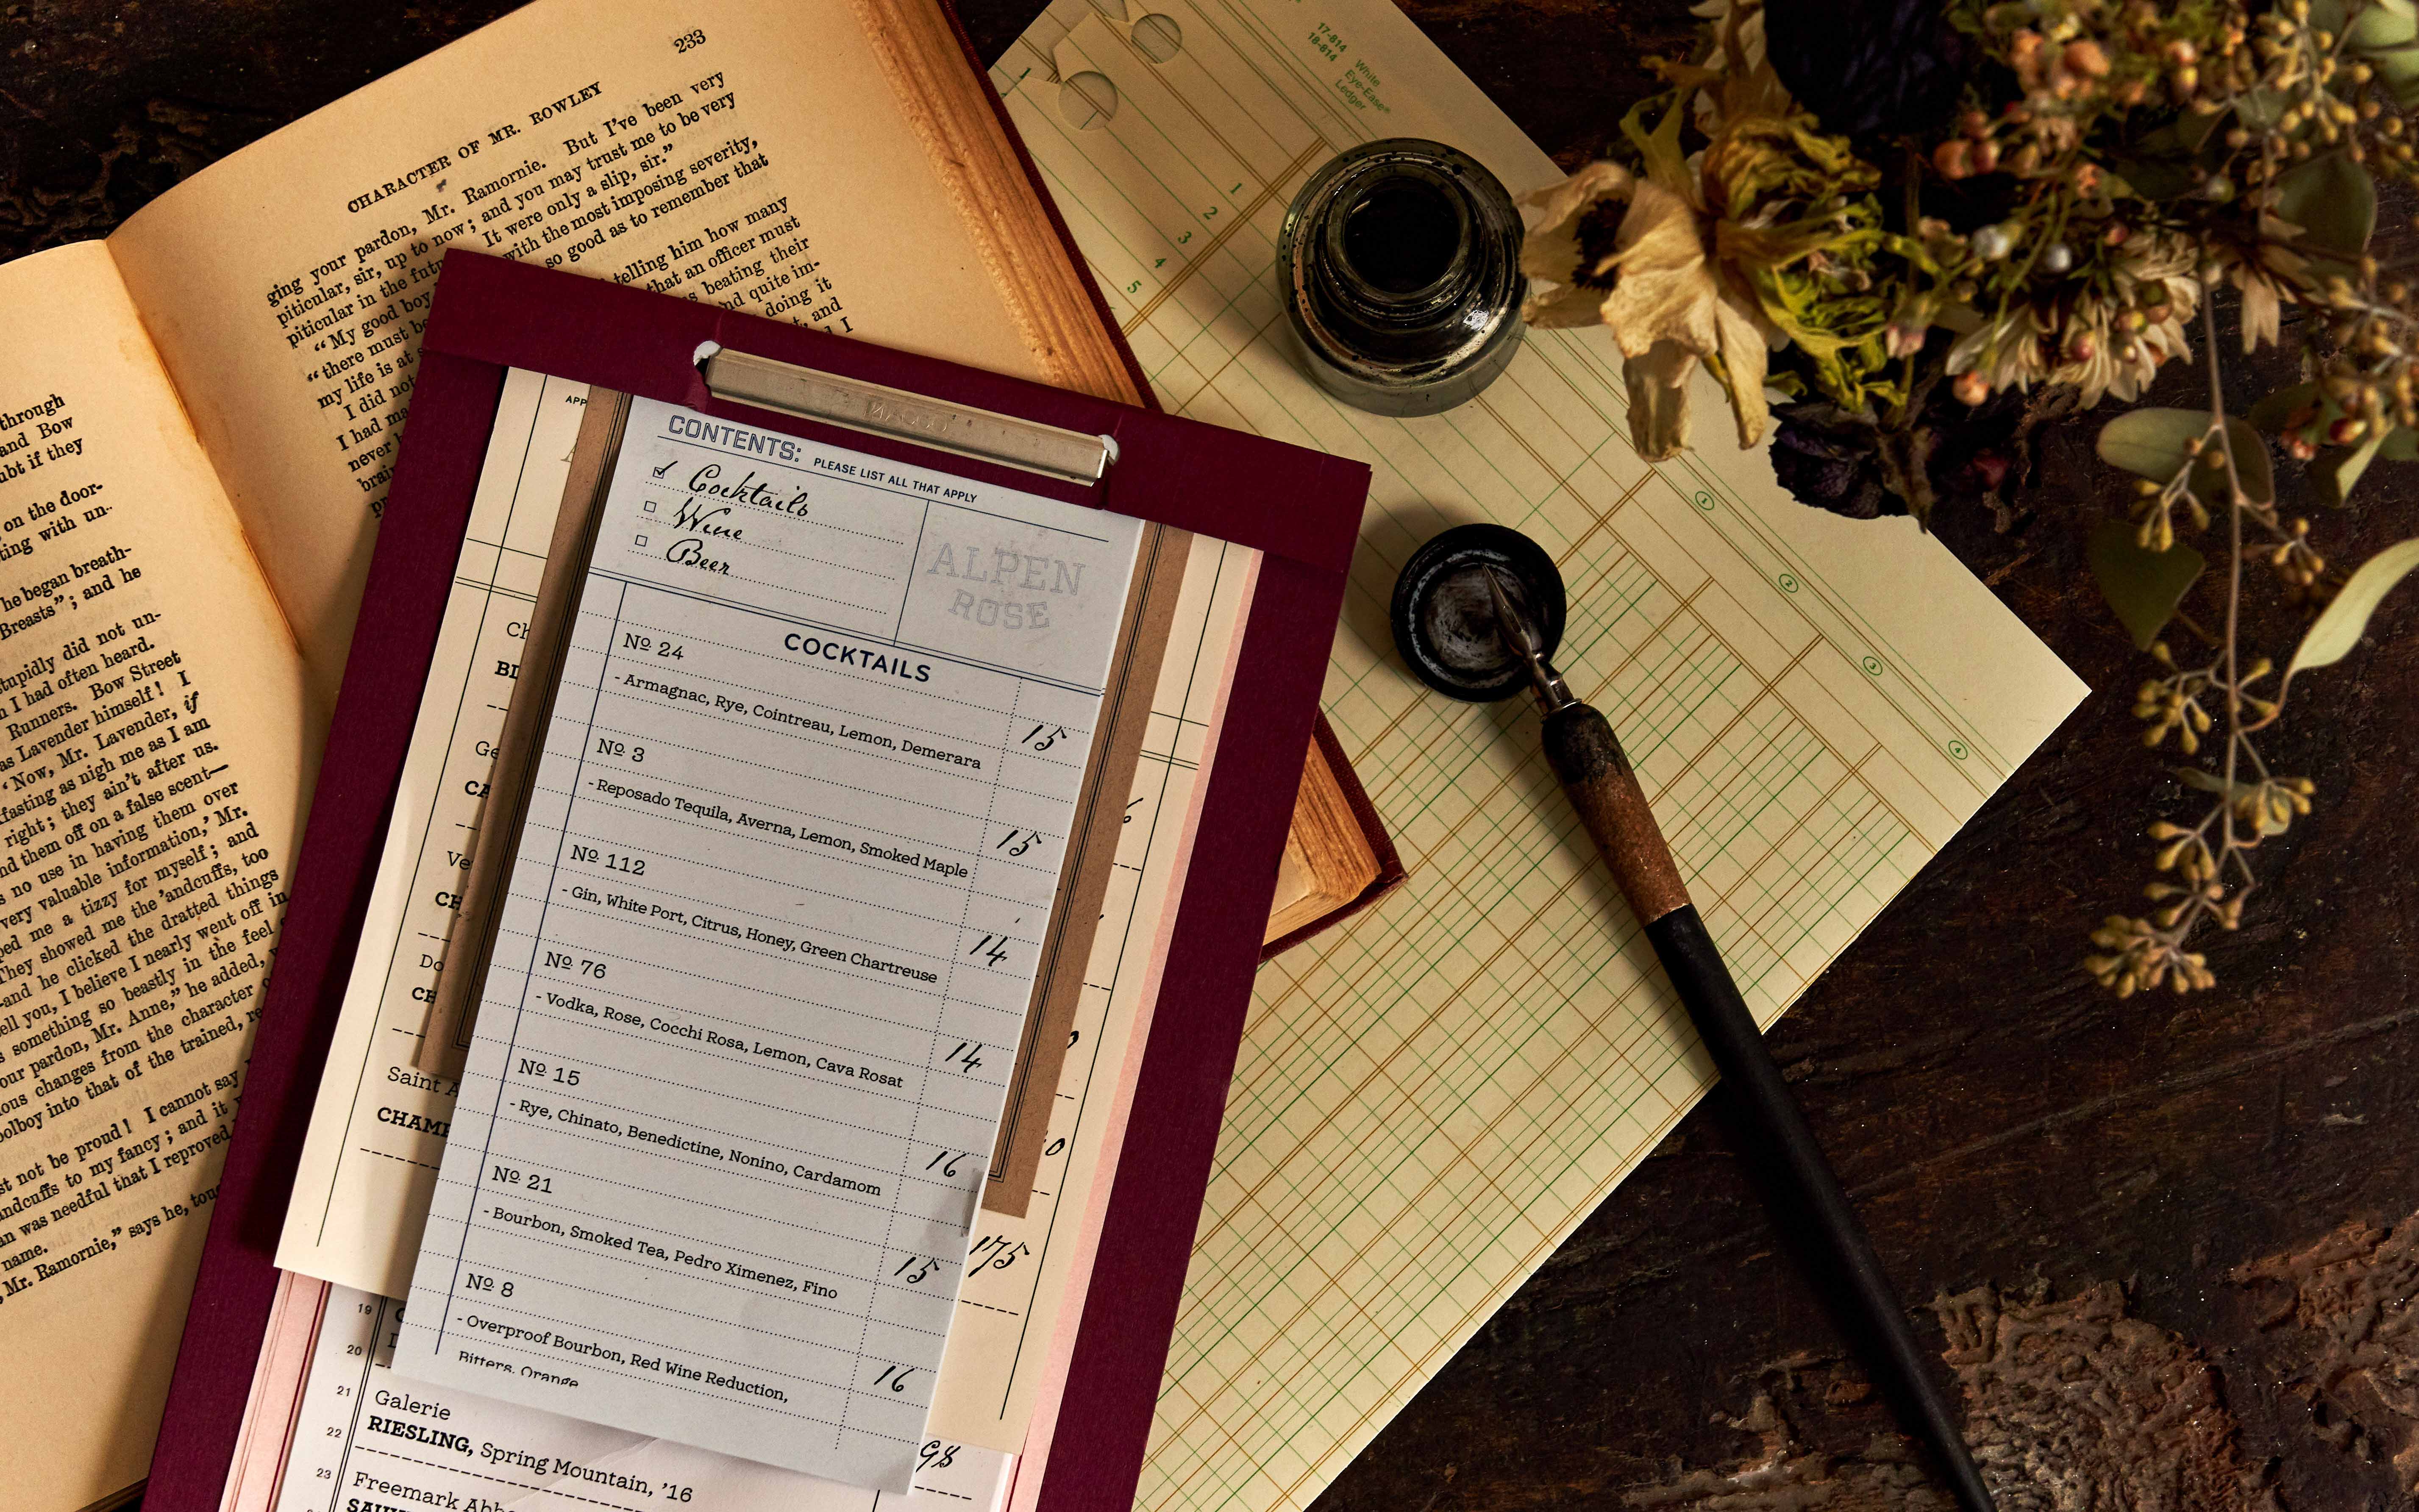 through
and Bow
ubt if they
on the door-
ting with un-
he began breath-
Breasts"; and he
stupidly did not un-
I had often heard.
Runners. Bow Street
as Lavender himself! I
'Now, Mr. Lavender, if
fasting as nigh me as I am
right; they ain't after us.
nd them off on a false scent—
s no use in having them over
very valuable information,' Mr.
ped me a tizzy for myself; and
They showed me the 'andcuffs, too
—and he clicked the dratted things
ell you, I believe I nearly went off in
something so beastly in the feel
our pardon, Mr. Anne," he added,
ous changes from the character
olboy into that of the trained,
not be proud! I cannot say
andcuffs to my fancy; and it
was needful that I reproved
name.
Mr. Ramornie," says he,
233
CHARACTER OF MR. ROWLEY
ging your pardon, Mr. Ramornie. But I've been very
piticular, sir, up to now; and you may trust me to be very
piticular in the It were only a slip, sir."
"My good boy with the most imposing severity,
"there must so good as to remember that
my life is at
I did not telling him how many
I had that an officer must
never beating their
and quite im-
doing it
and
I
CONTENTS: PLEASE LIST ALL THAT APPLY
Cocktails
Wine
Beer
ALPEN
ROSE
COCKTAILS
Nº 24
- Armagnac, Rye, Cointreau, Lemon, Demerara 15
Nº 3
- Reposado Tequila, Averna, Lemon, Smoked Maple 15
Nº 112
- Gin, White Port, Citrus, Honey, Green Chartreuse 14
Nº 76
- Vodka, Rose, Cocchi Rosa, Lemon, Cava Rosat 14
Nº 15
- Rye, Chinato, Benedictine, Nonino, Cardamom 16
Nº 21
- Bourbon, Smoked Tea, Pedro Ximenez, Fino 15
Nº 8
- Overproof Bourbon, Red Wine Reduction, 16
Bitters, Orange
APP
Ch
BL
Ge
CA
Ve
CH
Do
CH
Saint A
CHAM
175
98
19
20
21
Galerie
22
RIESLING, Spring Mountain, '16
23
Freemark Abb
17-814
18-814
White
Eye-Ease®
Ledger
1
1
2
3
4
5
1
2
3
4